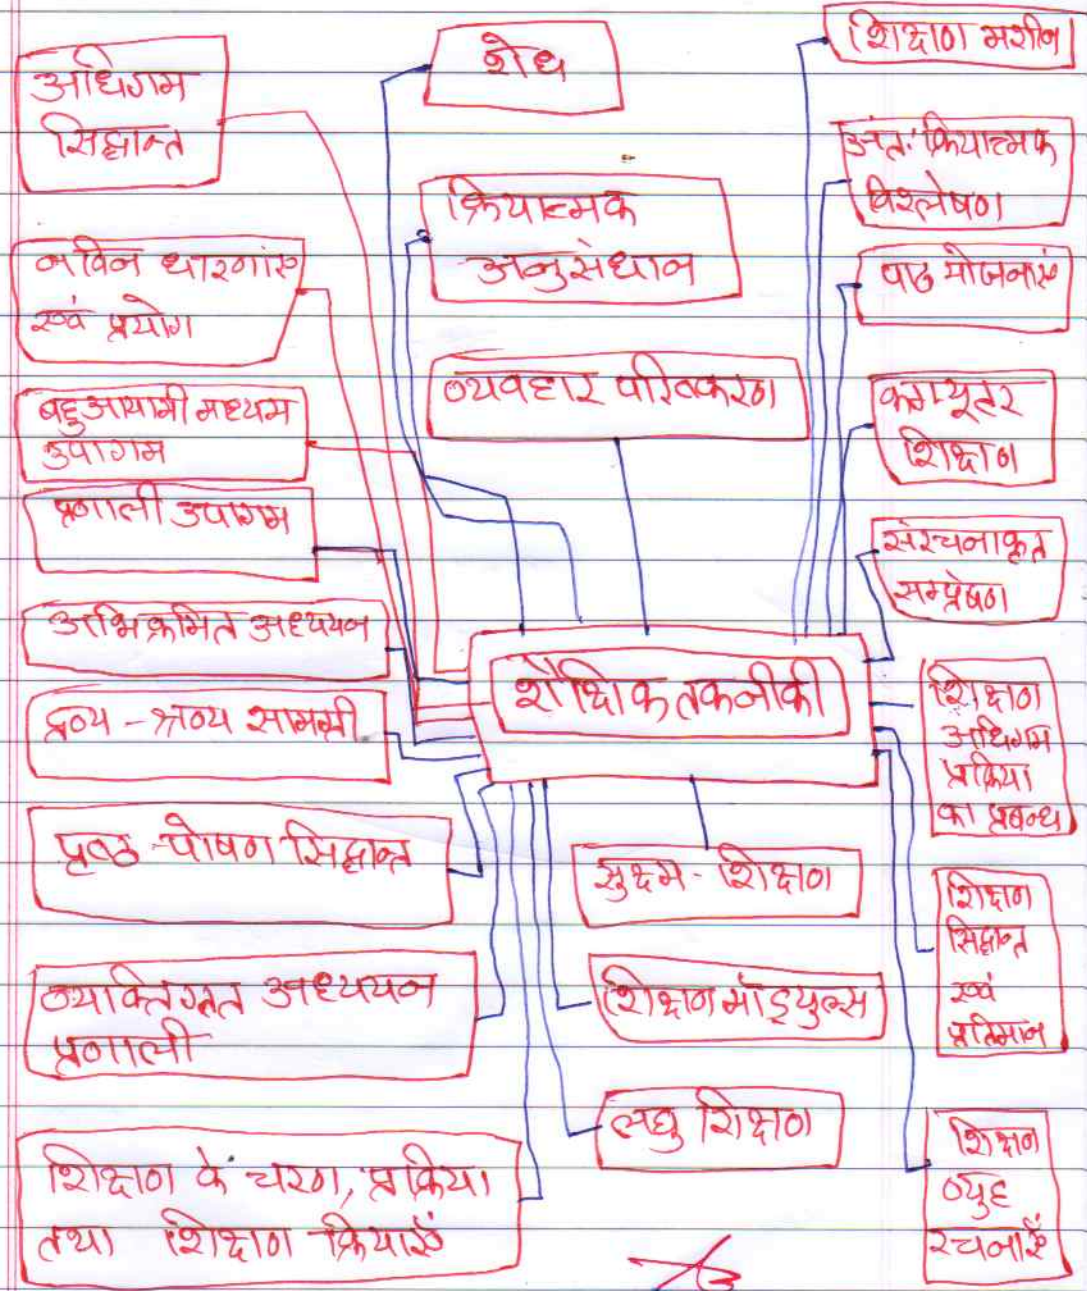 अधिगम
सिद्धान्त
नविन धारणाएं
एवं प्रयोग
बहुआयामी माध्यम
उपागम
प्रणाली उपागम
अभिक्रमित अध्ययन
द्रव्य - श्रव्य सामग्री
पृष्ठ - पोषण सिद्धान्त
व्यक्तिगत अध्ययन
प्रणाली
शिक्षण के चरण, प्रक्रिया
तथा शिक्षण क्रियाएं
शोध
क्रियात्मक
अनुसंधान
व्यवहार परितकरण
शैक्षिक तकनीकी
सुक्ष्म - शिक्षण
शिक्षण मॉड्युल्स
लघु शिक्षण
शिक्षण मशीन
अंत: क्रियात्मक
विश्लेषण
पाठ योजनाएं
कम्प्यूटर
शिक्षण
संरचनाकृत
सम्प्रेषण
शिक्षण
अधिगम
प्रक्रिया
का प्रबन्ध
शिक्षण
सिद्धान्त
एवं
प्रतिमान
शिक्षण
व्युह
रचनाएँ